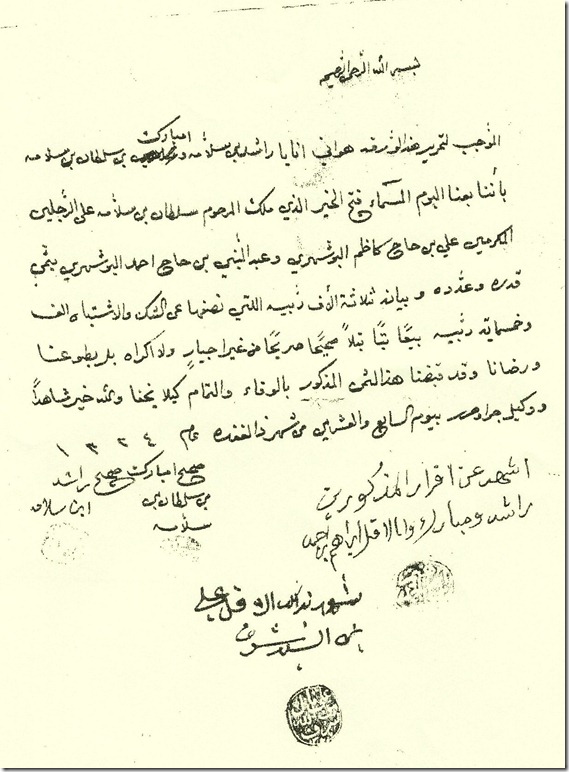 بسم الله الرحمن الرحيم
الموجب لتحرير هذا الورقه هو اني انا يا راشد بن سلامه و امبارك بن سلطان بن سلامه
بأننا بعنا اليوم المسماء فتح الخير الذي ملك المرحوم سلطان بن سلامه على الرجلين
المكرمين علي بن حاج كاظم البوشهري وعبد النبي بن حاج احمد البوشهري بثمن
قدره وعدده وبيانه ثلاثة الآف ربيه اللتي نصفها عن الشك والاشتباه الف
وخمسماية ربيه بيعًا بتًا بتلاً صحيحًا صريحًا من غير اجبارٍ ولا اكراه بل بطوعنا
ورضانا وقد قبضنا هذا الثمن المذكور بالوفاء والتمام كيلا يخفا والله خير شاهداً
ووكيل جرا وحرر بيوم السابع والعشرين من شهر ذا القعده عام ١٣٢٤
صحيح راشد
ابن سلامه
صحيح امبارك
بن سلطان بن
سلامه
اشهد عن اقرار المذكورين
راشد ومبارك وانا الاقل ابراهيم بن احمد
شهد بذلك الاقل علي
بن